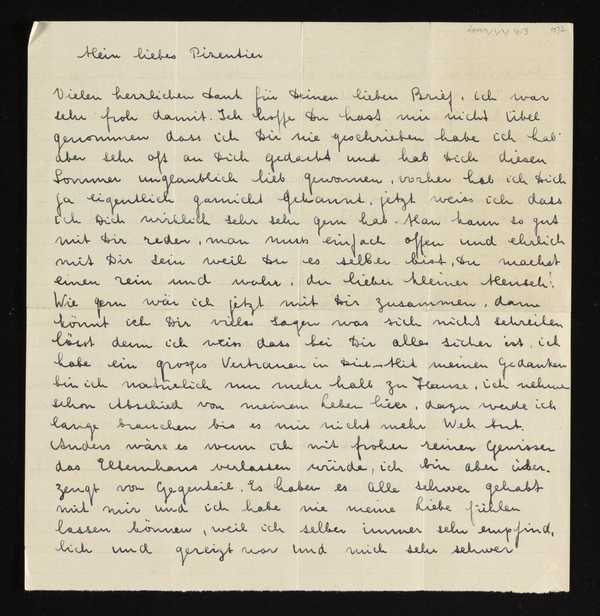 Mein liebes Pizentier
Vielen herzlichen Dank für Deinen lieben Brief, ich war
sehr froh damit. Ich hoffe Du hast mir nicht Übel
genommen dass ich Dir nie geschrieben habe ich hab'
aber sehr oft an Dich gedacht und hab Dich diesen
Sommer unglaublich lieb gewonnen, vorher hab ich Dich
ja eigentlich garnicht Gekannt, jetzt weiss ich dass
ich Dich wirklich sehr sehr gern hab. Man kann so gut
mit Dir reden, man muss einfach offen und ehrlich
mit Dir sein weil Du es selber bist, Du machst
einen rein und wahr, du lieber kleiner Mensch!
Wie gern wär ich jetzt mit Dir zusammen, dann
könnt ich Dir vieles sagen was sich nicht schreiben
lässt denn ich weiss dass bei Dir alles sicher ist, ich
habe ein grosses Vertrauen in Dich. Mit meinen Gedanken
bin ich natürlich nur mehr halb zu Hause, ich nehme
schon Abschied von meinem Leben hier, dazu werde ich
lange brauchen bis es mir nicht mehr Weh tut.
Anders wäre es wenn ich mit froher reinen Gewissen
das Elternhaus verlassen würde, ich bin aber über-
zeugt von Gegenteil. Es haben es Alle schwer gehabt
mit mir und ich habe nie meine Liebe fühlen
lassen können, weil ich selber immer sehr empfind,
lich und gereizt war und mich sehr schwer